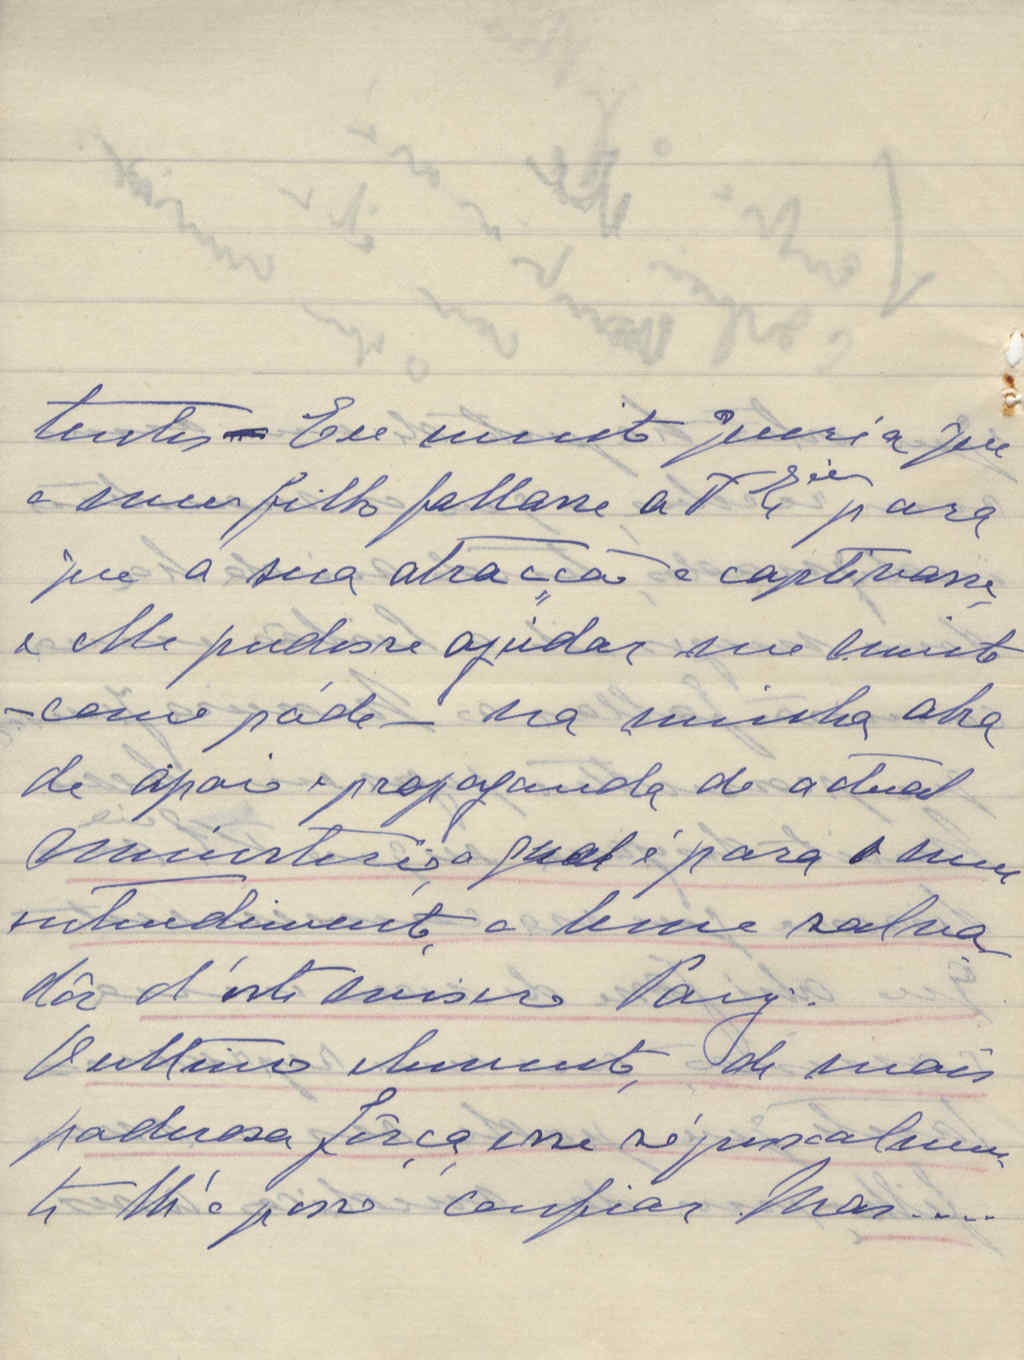 tentes – Eu muito queria que
o meu filho fallasse a V. Exᶜⁱᵃ para
que a sua atracção o captivasse,
e elle pudesse ajudar me muito
– como póde – na minha obra
de apoio e propaganda do actual
ministerio, o qual é para o meu
entendimento, o leme salva-
dôr d'este misero Paiz.
Oultimo elemento, de mais
poderosa fôrça, esse só pessoalmen
te lh'o posso confiar. Mas....